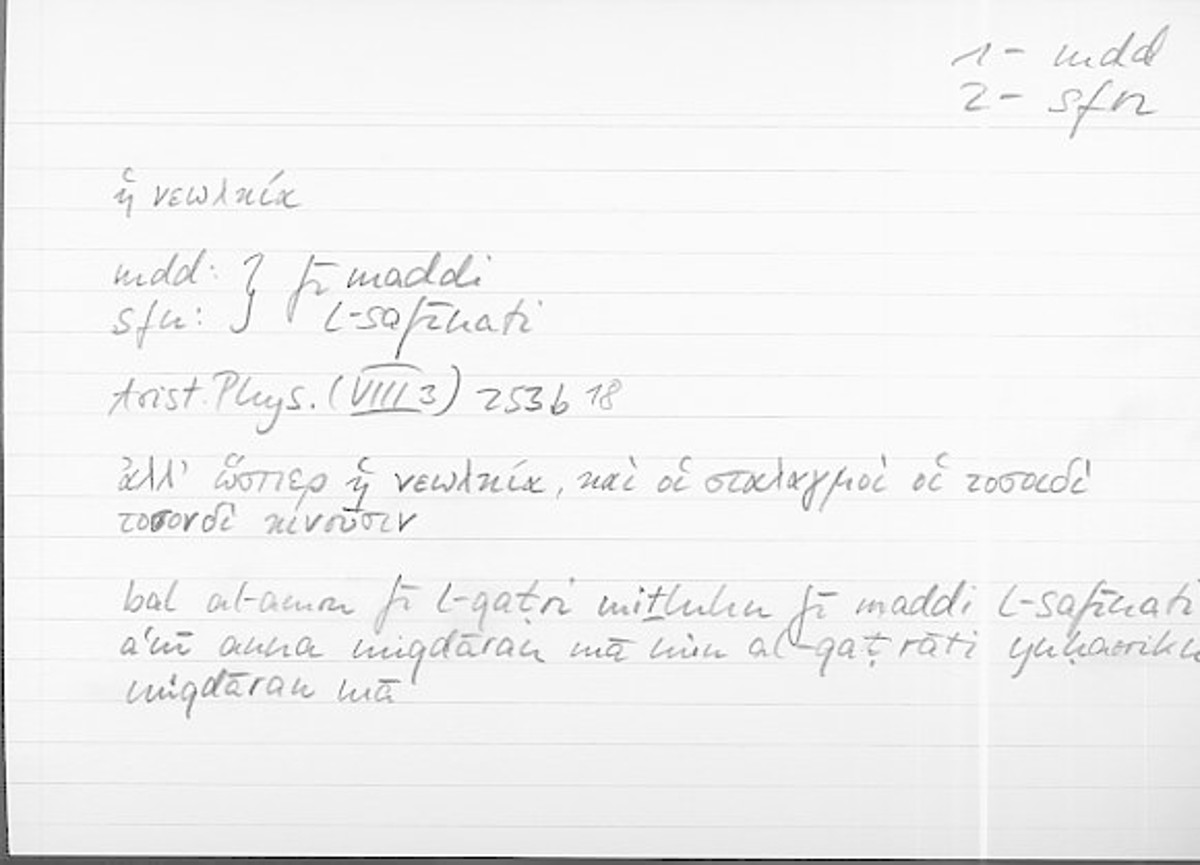 1- mdd
2- sfn
ἡ νεωλκία
mdd: } fī maddi
sfn: } l-safīnati
Arist. Phys. (VIII 3) 253b 18
ἀλλ' ὥσπερ ἡ νεωλκία, καὶ οἱ σταλαγμοὶ οἱ τοσοιδὶ
τοσονδὶ κινοῦσιν
bal al-amru fī l-qaṭri miṯluhu fī maddi l-safīnati
aʿnī anna miqdāran mā min al-qaṭrāti yuḥarriku
miqdāran mā